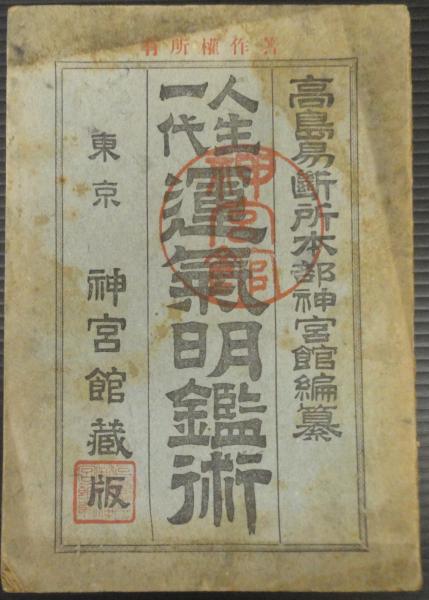 著作権所有
高島易斷所本部神宮館編纂
人生一代
運氣明鑑術
東京 神宮館藏版
神宮館